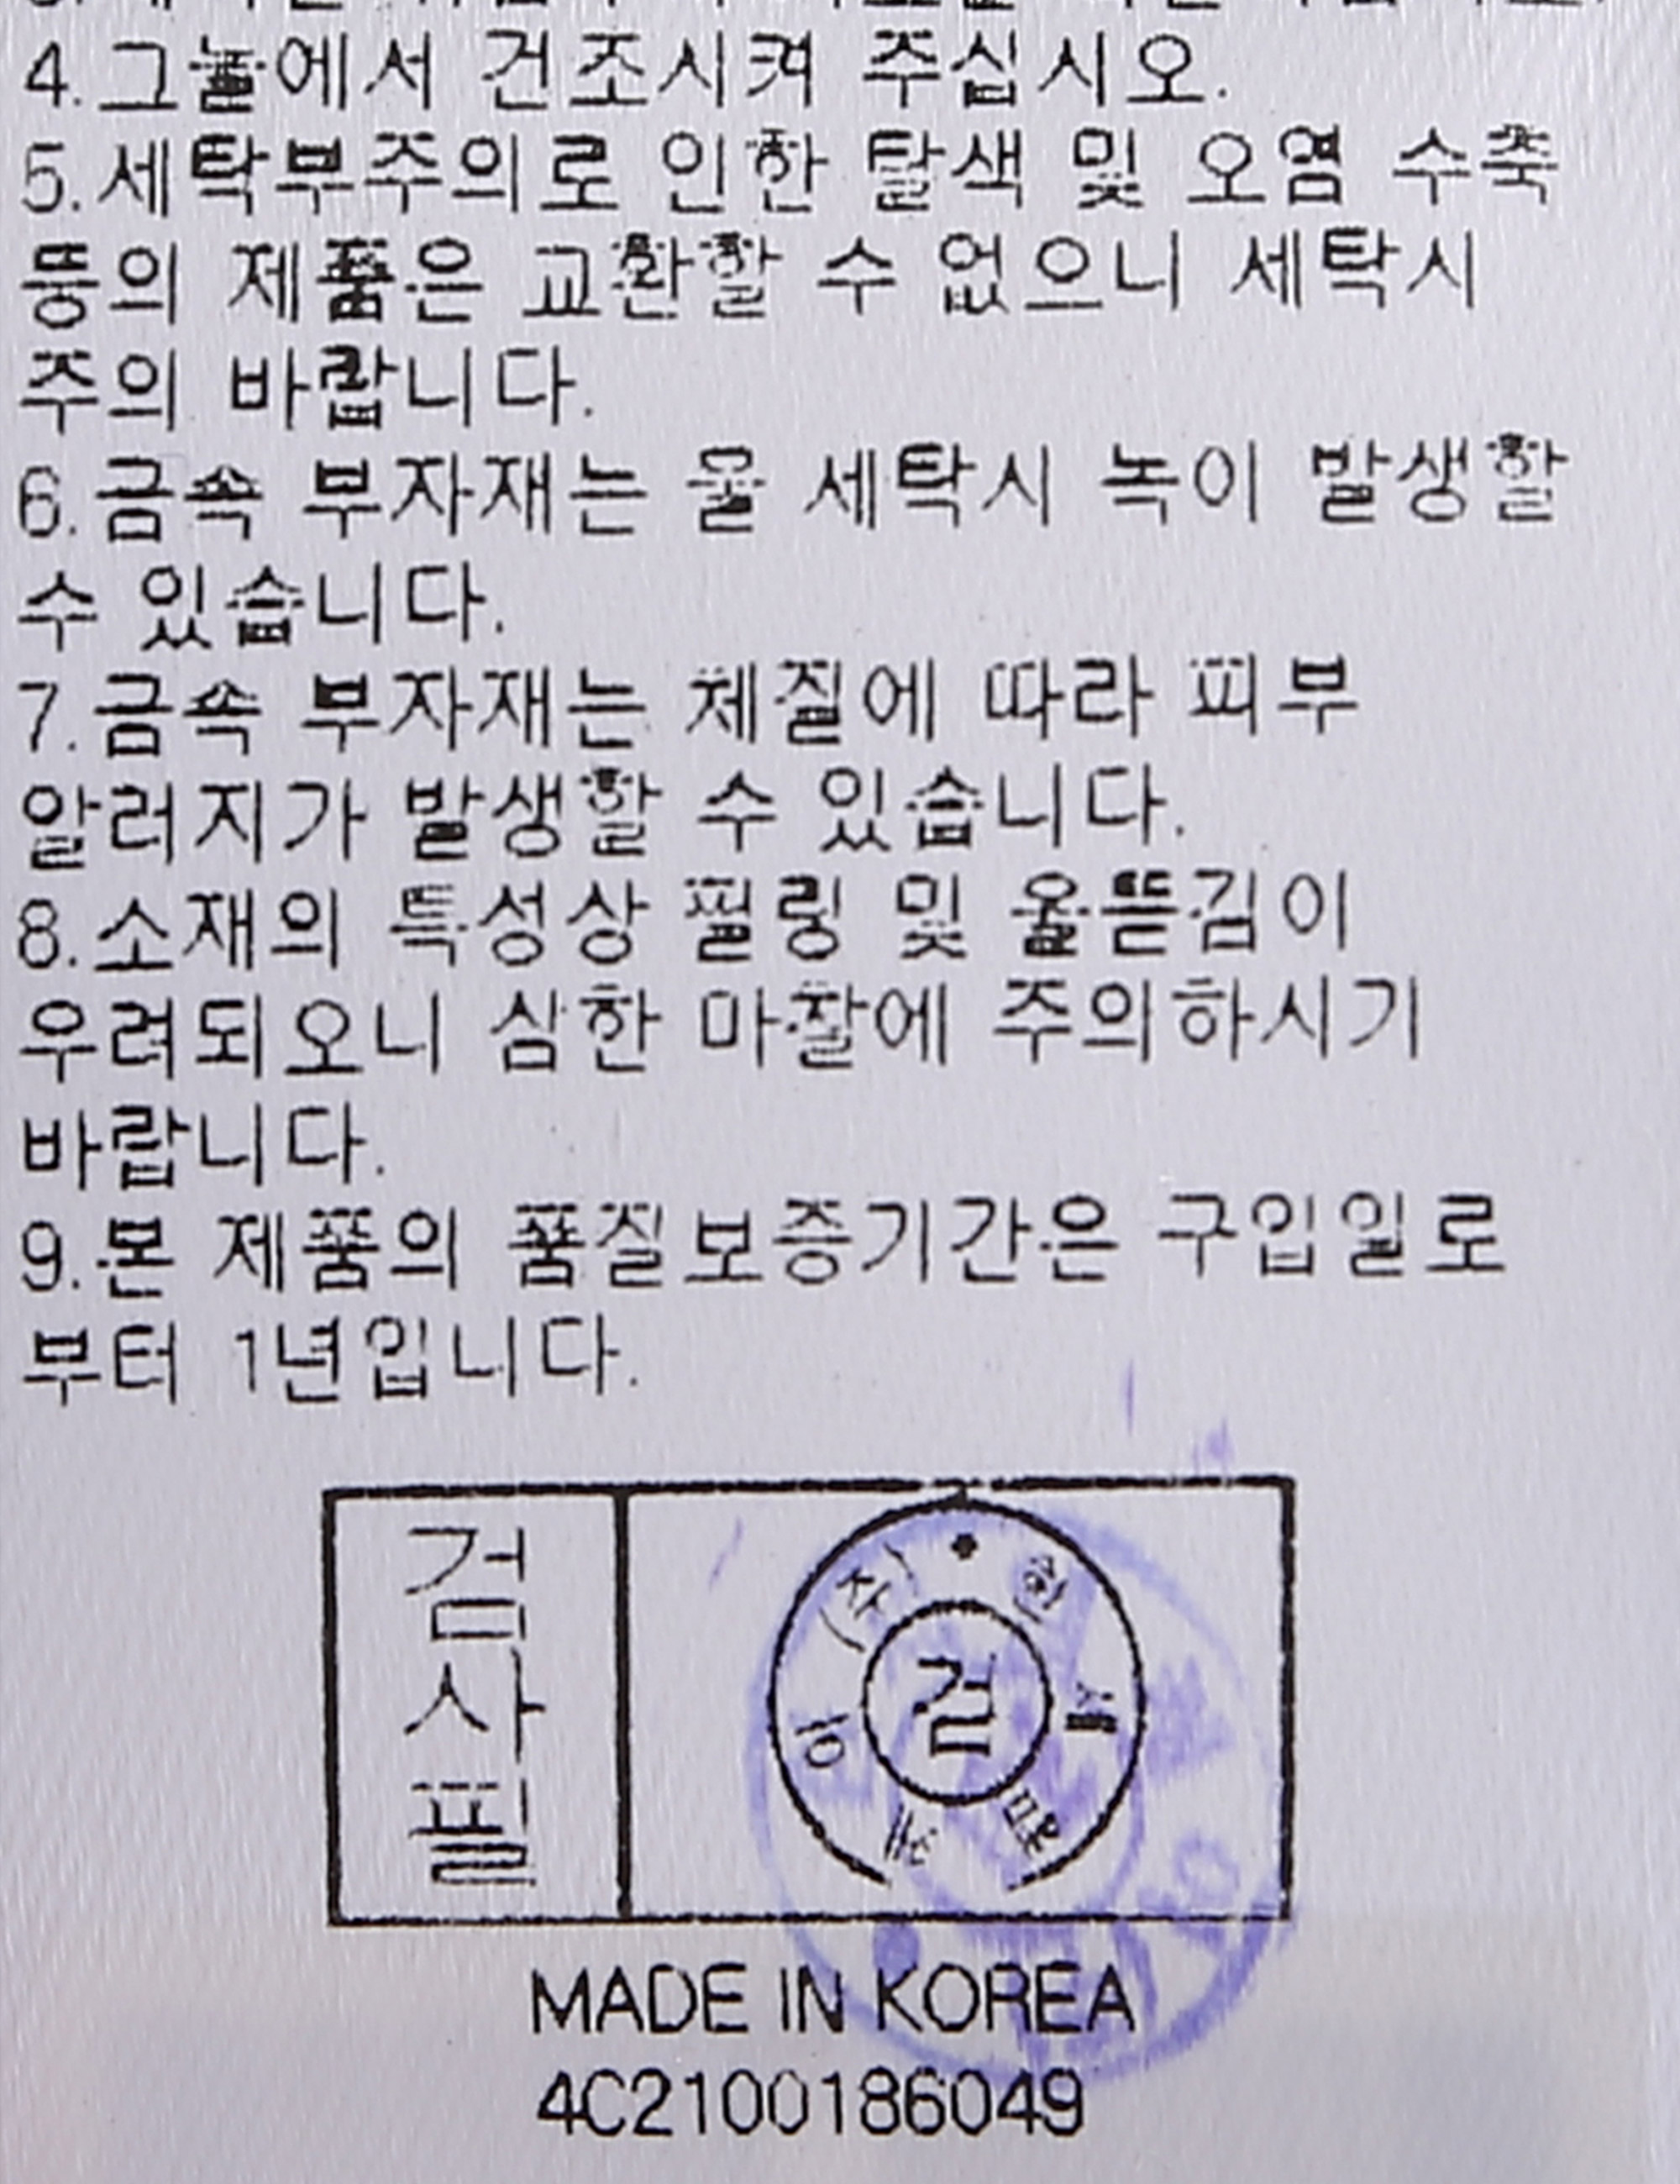 4.그늘에서 건조시켜 주십시오.
5.세탁부주의로 인한 탈색 및 오염 수축
뜽의 제품은 교환할 수 없으니 세탁시
주의 바랍니다.
6.금속 부자재는 물 세탁시 녹이 발생할
수 있습니다.
7.금속 부자재는 체질에 따라 피부
알러지가 발생할 수 있습니다.
8.소재의 특성상 필링 및 올뜯김이
우려되오니 심한 마찰에 주의하시기
바랍니다.
9.본 제품의 품질보증기간은 구입일로
부터 1년입니다.
검사필
(주)
검
MADE IN KOREA
4C2100186049